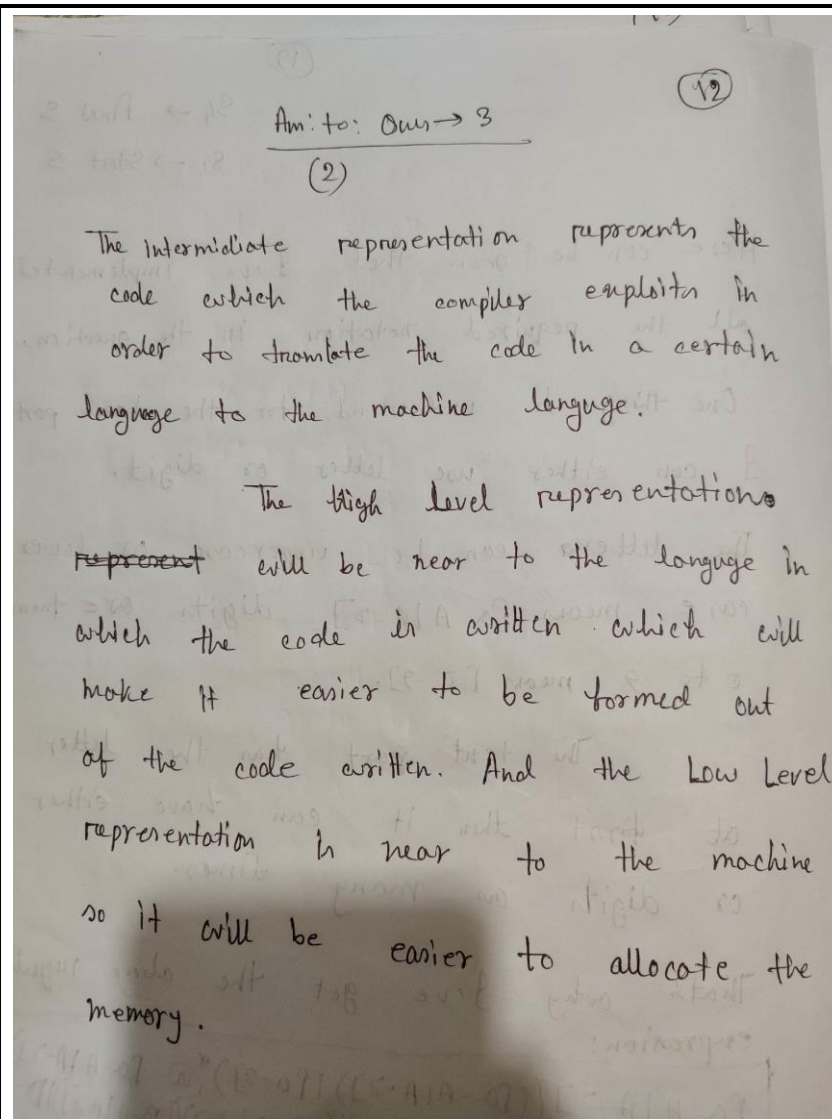 12
Ans: to: Ques → 3
(2)
The intermidiate representation represents the
code which the compiler exploits in
order to translate the code in a certain
language to the machine languge.
The High level representation
represent will be near to the languge in
which the code is written which will
make it easier to be formed out
of the code written. And the Low Level
representation is near to the machine
so it will be easier to allocate the
memory.